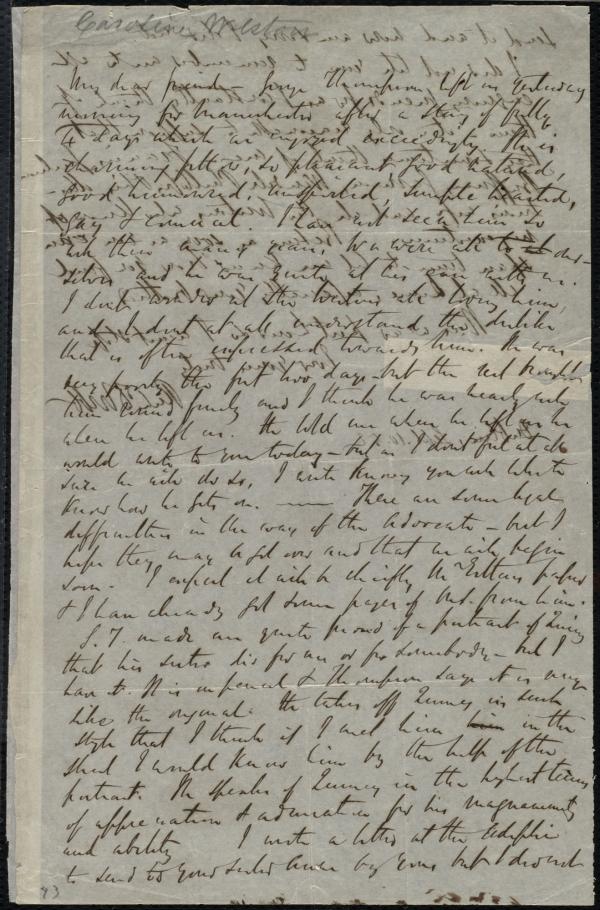 Caroline Weston
My dear friend - George Thompson left us yesterday
morning for Manchester after a stay of fully
4 days which we enjoyed exceedingly. He is
charming fellow, so pleasant, good natured,
good humoured, simple hearted,
gay & comical. I have not seen him so
many years, We were all to our-
selves and he was quite at his ease with us.
I don't wonder at the Westons all loving him,
and I don't at all understand the dislike
that is often expressed towards him. He was
very poorly the first two days - but the rest brought
him round finely and I think he was nearly well
when he left us. He told me when he left us he
would write to you today - but as I don't feel at all
sure he will do so, I write knowing you will like to
know how he gets on. —— There are some legal
difficulties in the way of the Advocate - but I
hope they may be got over and that we will begin
soon. I expect it will be chiefly Mr Estlin's paper
& I have already got some pages of M.S. from him.
G. T. made me quite proud of a portrait of Quincy
that his sister did for me or for somebody - but I
have it. It is unframed & Thompson says it is very
like the original. He takes off Quincy in such
style that I think if I met him in the
street I would know him by the help of the
portrait. He speaks of Quincy in the highest terms
of appreciation & admiration for his magnanimity
and ability I wrote a letter at the Adelphi
to send to your sister Anne by you but I did not
93